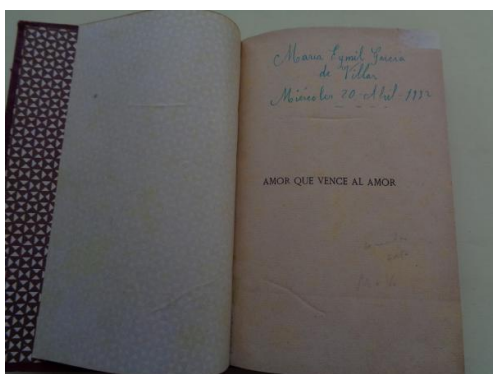 Maria Eymil García
de Villar
Miércoles 20-Abril-1932
AMOR QUE VENCE AL AMOR